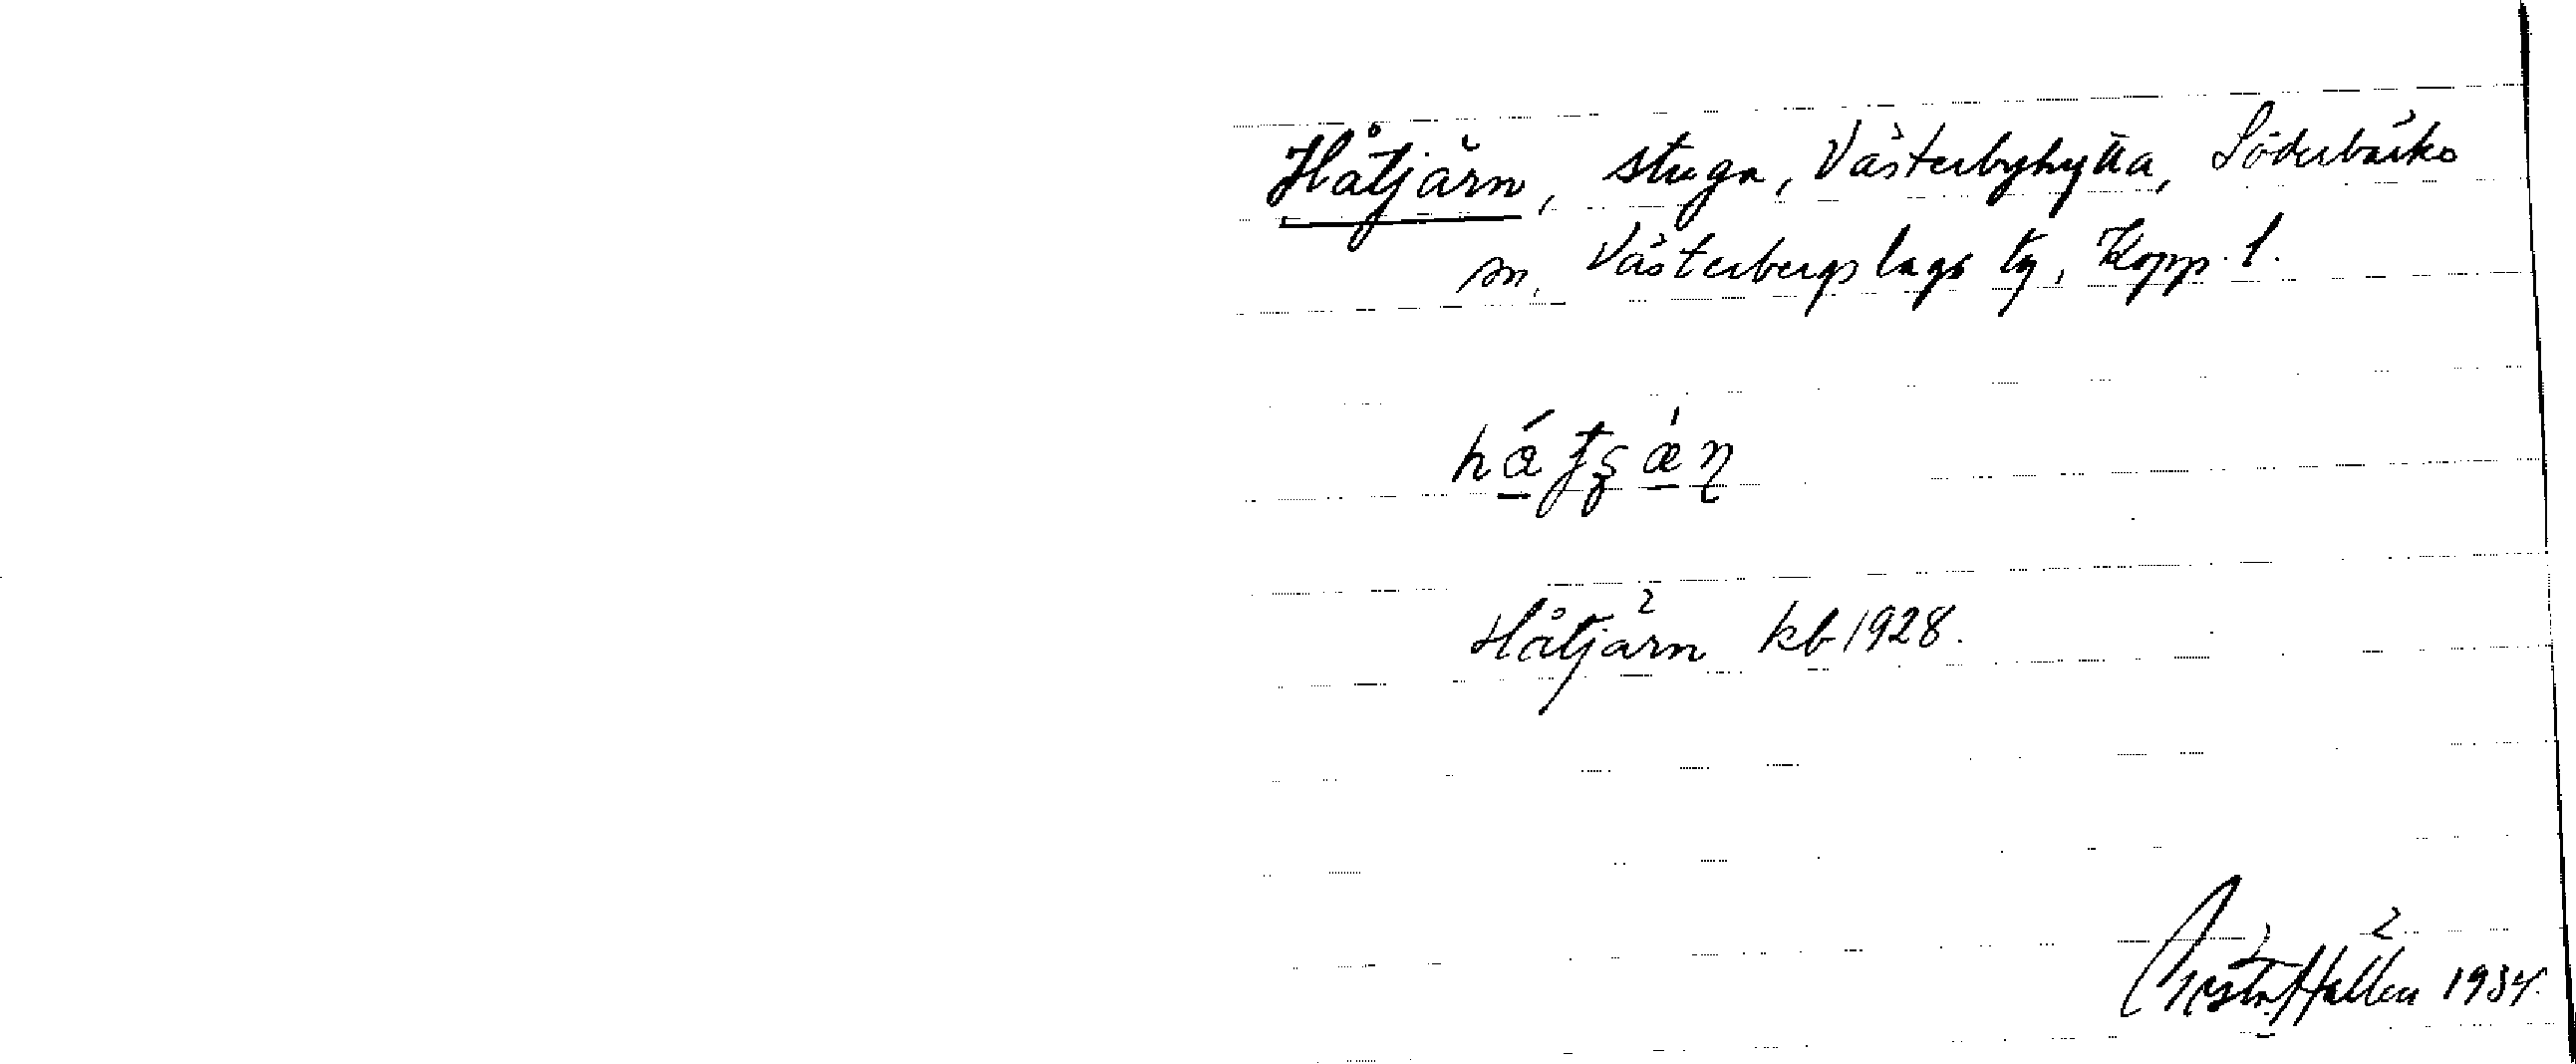 Håtjärn, stuga, Västerbyhytta, Söderbärke
sn. Västerbergslags tg, Kopp. l.
Håtjärn kb 1928.
Gösta Hallén 1934.